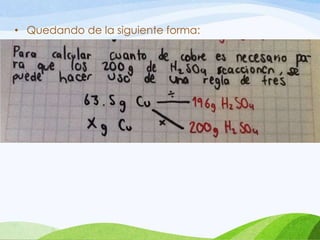 • Quedando de la siguiente forma:
Para calcular cuanto de cobre es necesario pa
ra que los 200g de H₂SO₄ reaccionen, se
puede hacer uso de una regla de tres
63.5g Cu ÷ 196g H₂SO₄
X g Cu x 200g H₂SO₄